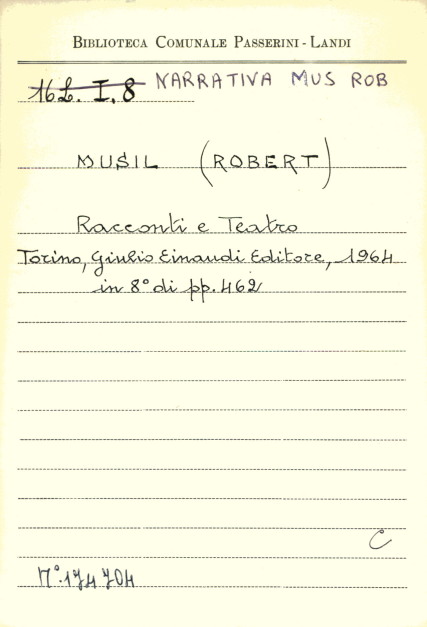 BIBLIOTECA COMUNALE PASSERINI - LANDI
16 L. I. 8 NARRATIVA MUS ROB
MUSIL (ROBERT)
Racconti e Teatro
Torino, Giulio Einaudi Editore, 1964
in 8° di pp. 462
C
N°. 174704